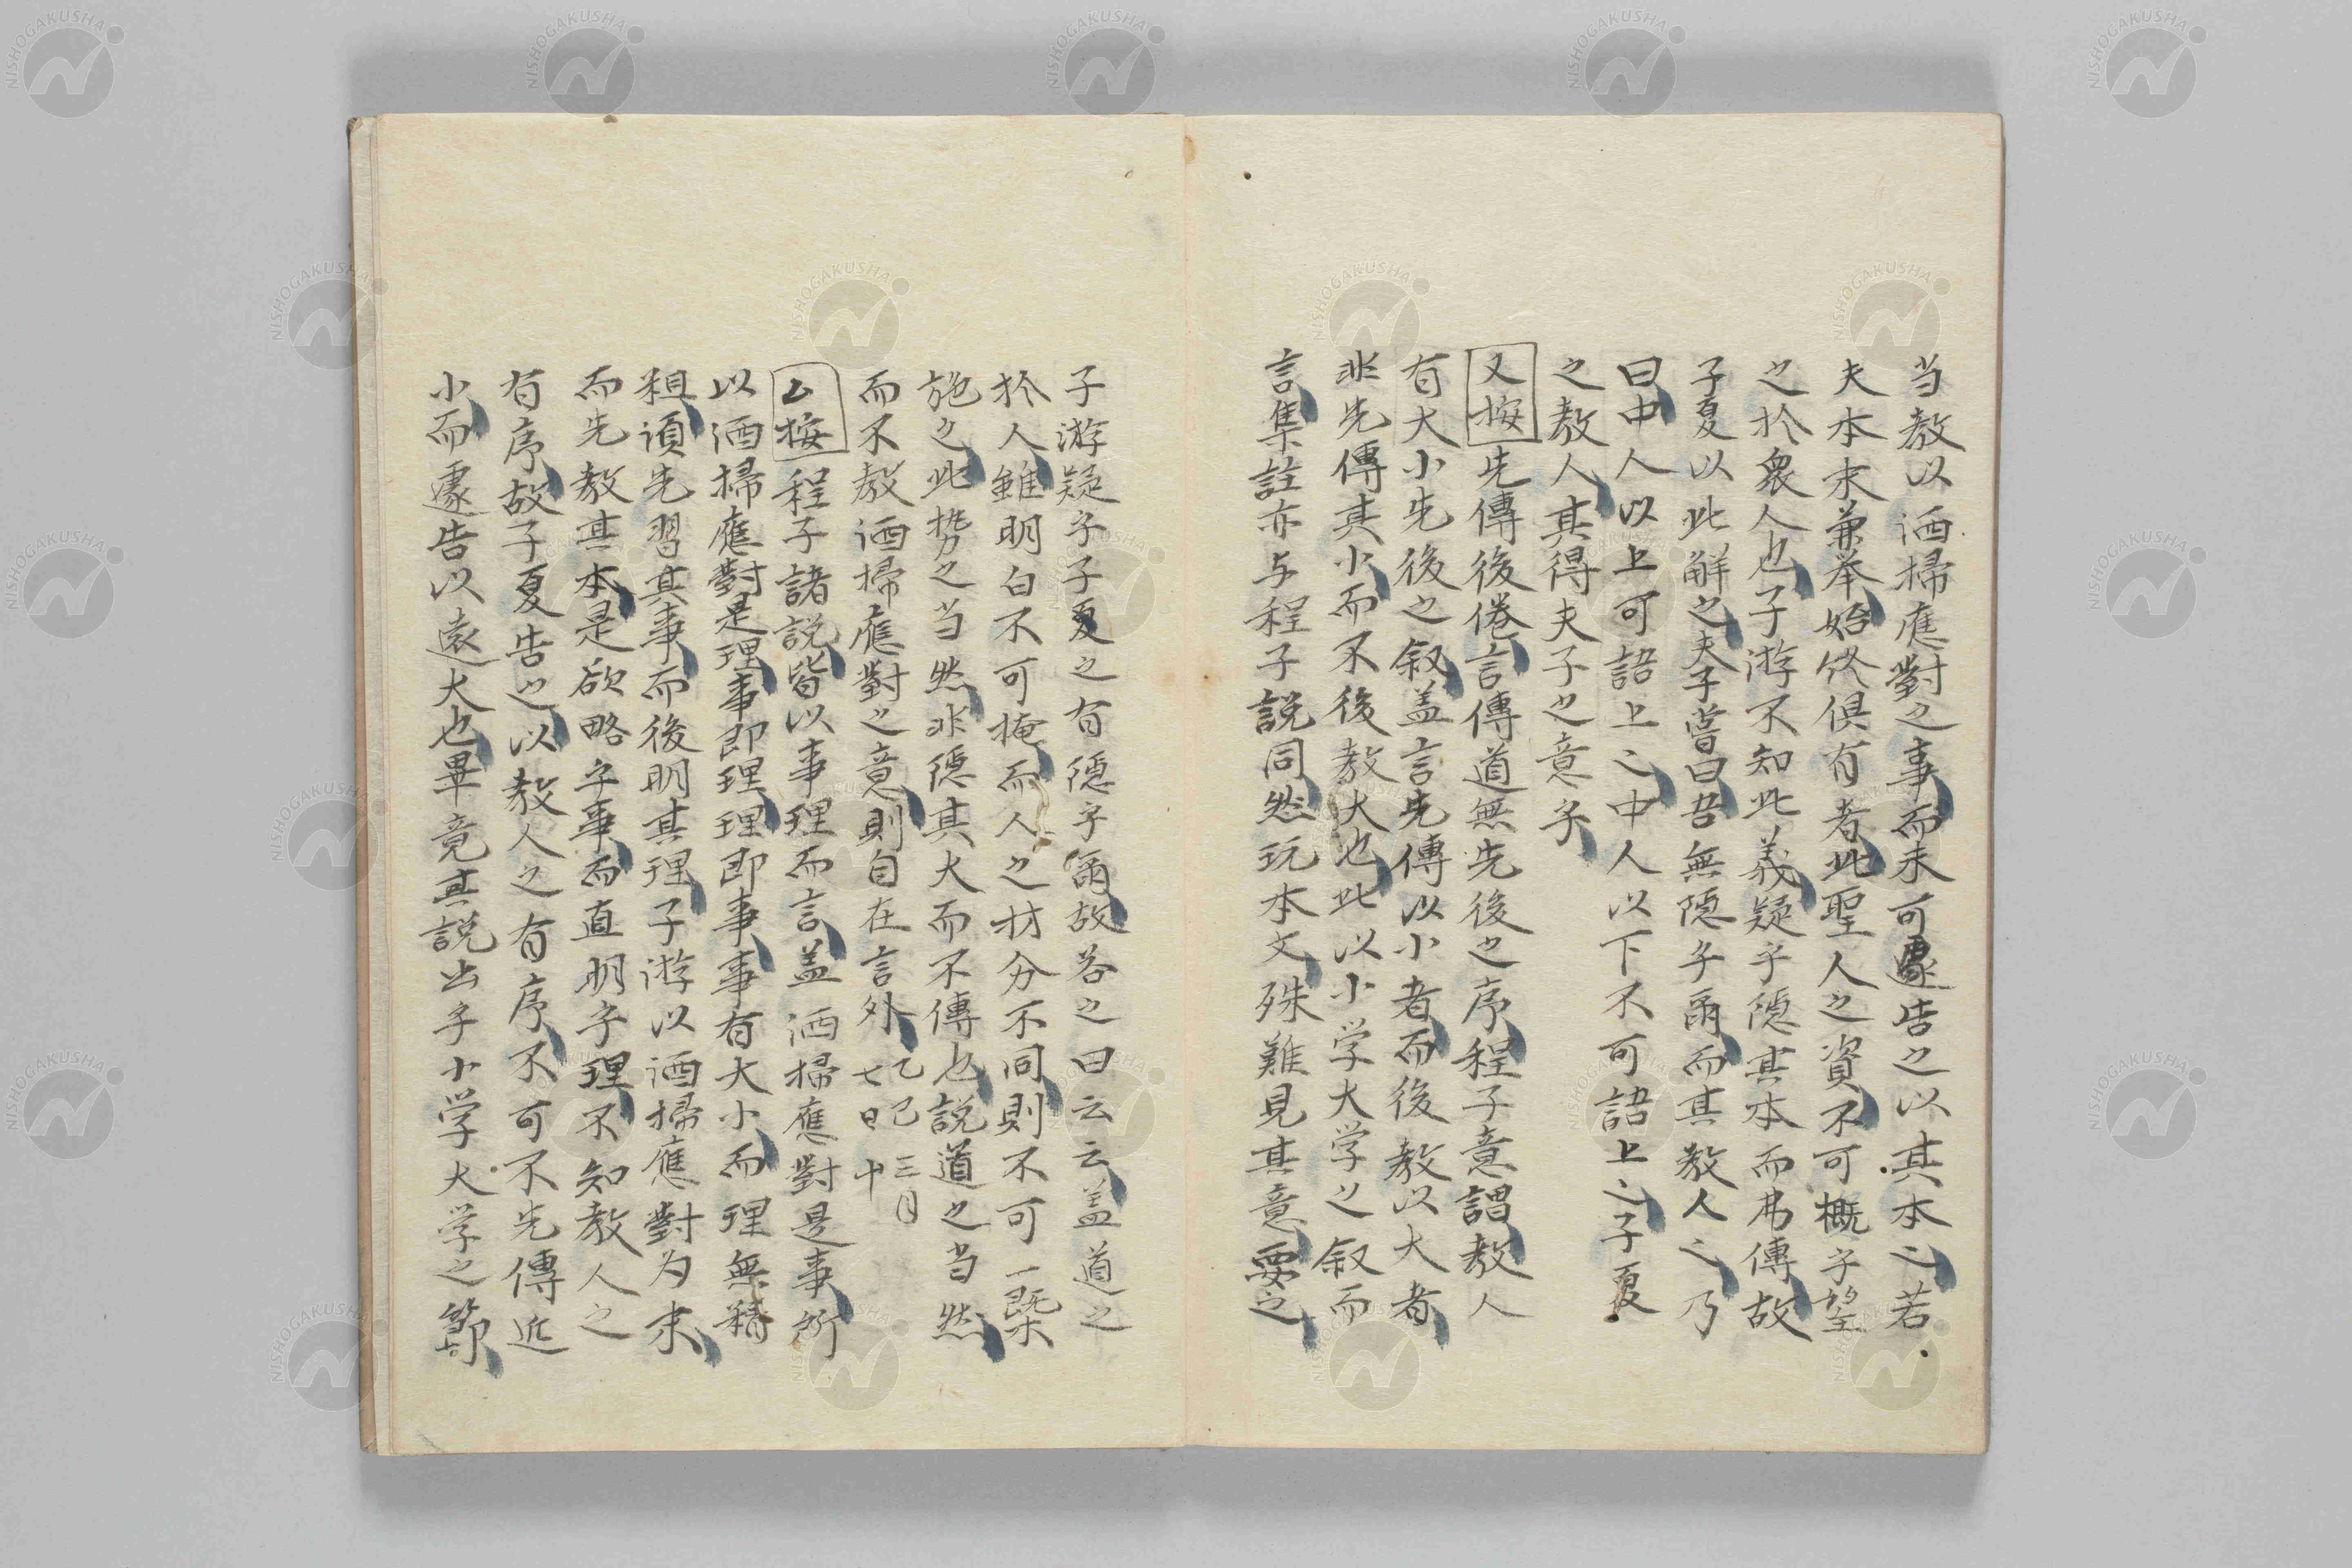 当教以洒掃應對之事而未可遽告之以其本之若
夫本末兼挙始终倶有者此聖人之資不可概乎望
之於衆人也子游不知此義疑乎隠其本而弗傳故
子夏以此解之夫子嘗曰吾無隠乎爾而其教人之乃
曰中人以上可語上之中人以下不可語上之子夏
之教人其得夫子之意乎
又按先傳後倦言傳道無先後之序程子意謂教人
有大小先後之叙盖言先傳以小者而後教以大者
非先傳其小而不後教大也此以小学大学之叙而
言集註亦与程子説同然玩本文殊難見其意要之
子游疑乎子夏之有隠乎爾故答之曰云云盖道之
於人雖明白不可掩而人之材分不同則不可一槩
施之此勢之当然非隠其大而不傳也説道之当然
而不教洒掃應對之意則自在言外乙巳三月
七日中
厶按程子諸説皆以事理而言盖洒掃應對是事所
以洒掃應對是理事即理理即事事有大小而理無精
粗須先習其事而後明其理子游以洒掃應對为末
而先教其本是欲略乎事而直明乎理不知教人之
有序故子夏告之以教人之有序不可不先傳近
小而遽告以遠大也畢竟其説出乎小学大学之節
NISHOGAKUSHA